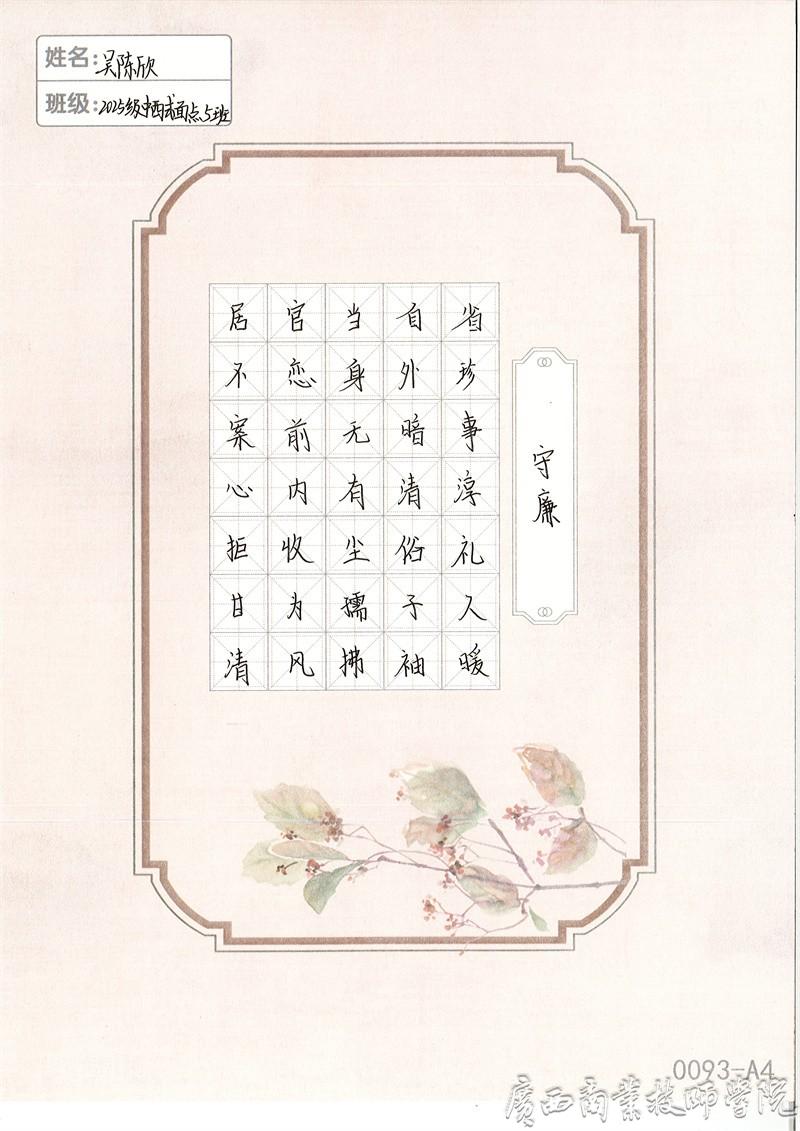 姓名:吴陈欣
班级:2025级中西式面点5班
守廉
居官当自省
不恋身外珍
案前无暗事
心内有清淳
拒收尘俗礼
甘为孺子人
清风拂袖暖
0093-A4
廣西商業技師學院